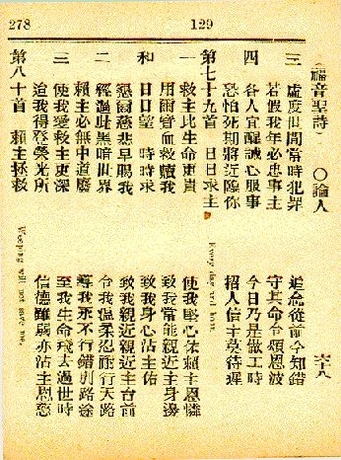 278
129
(福音聖詩) 〇論人 六十八
三 虛度世間當時犯罪 追念從前今知錯
若假我年必忠事主 守其命令頌恩波
四 各人宜醒誠心服事 今日乃是做工時
恐怕死期將近臨你 招人信主莫待遲
第七十九首 日日求主 Every day and hour.
一 救主此生命更貴 使我堅心依賴主恩憐
用爾寶血救贖我 致我常能親近主身邊
和 日日望 時時求 致我身心沾主佑
懇爾慈悲早賜我 致我親近親近主台前
二 經過此黑暗世界 令我溫柔忍耐行天路
賴主必無中道廢 導我永不行錯到路途
三 使我愛救主更深 至我生命飛去過世時
迨我得登榮光所 信德雖弱亦沾主恩慈
第八十首 賴主拯救 Weeping will not save me.